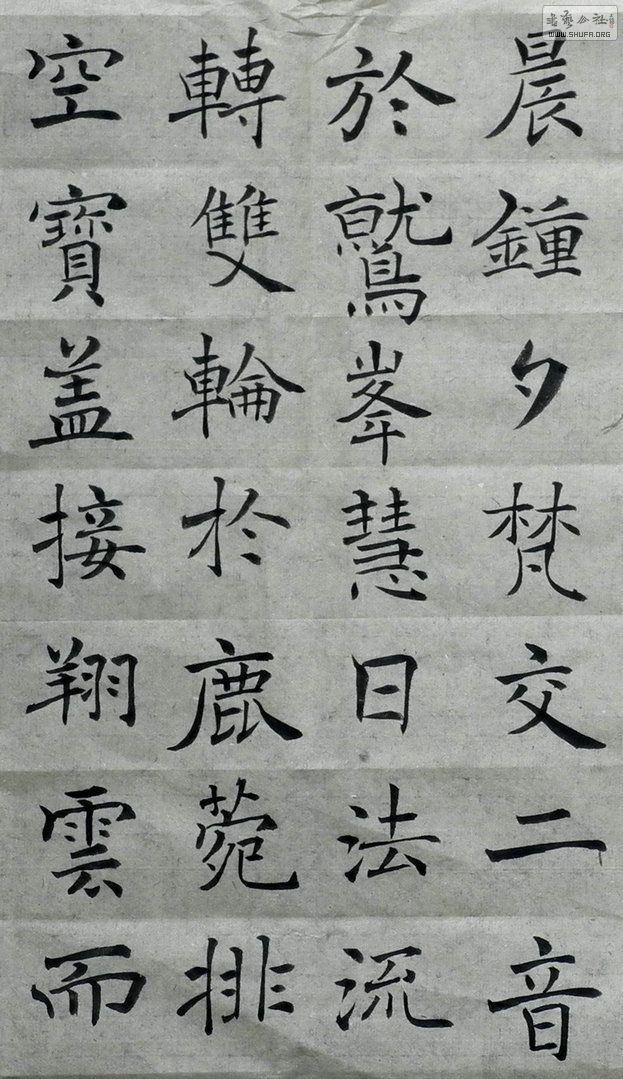 晨鍾夕梵交二音
於鷲峯慧日法流
轉雙輪於鹿菀排
空寶盖接翔雲而
書藝公社
WWW.SHUFA.ORG